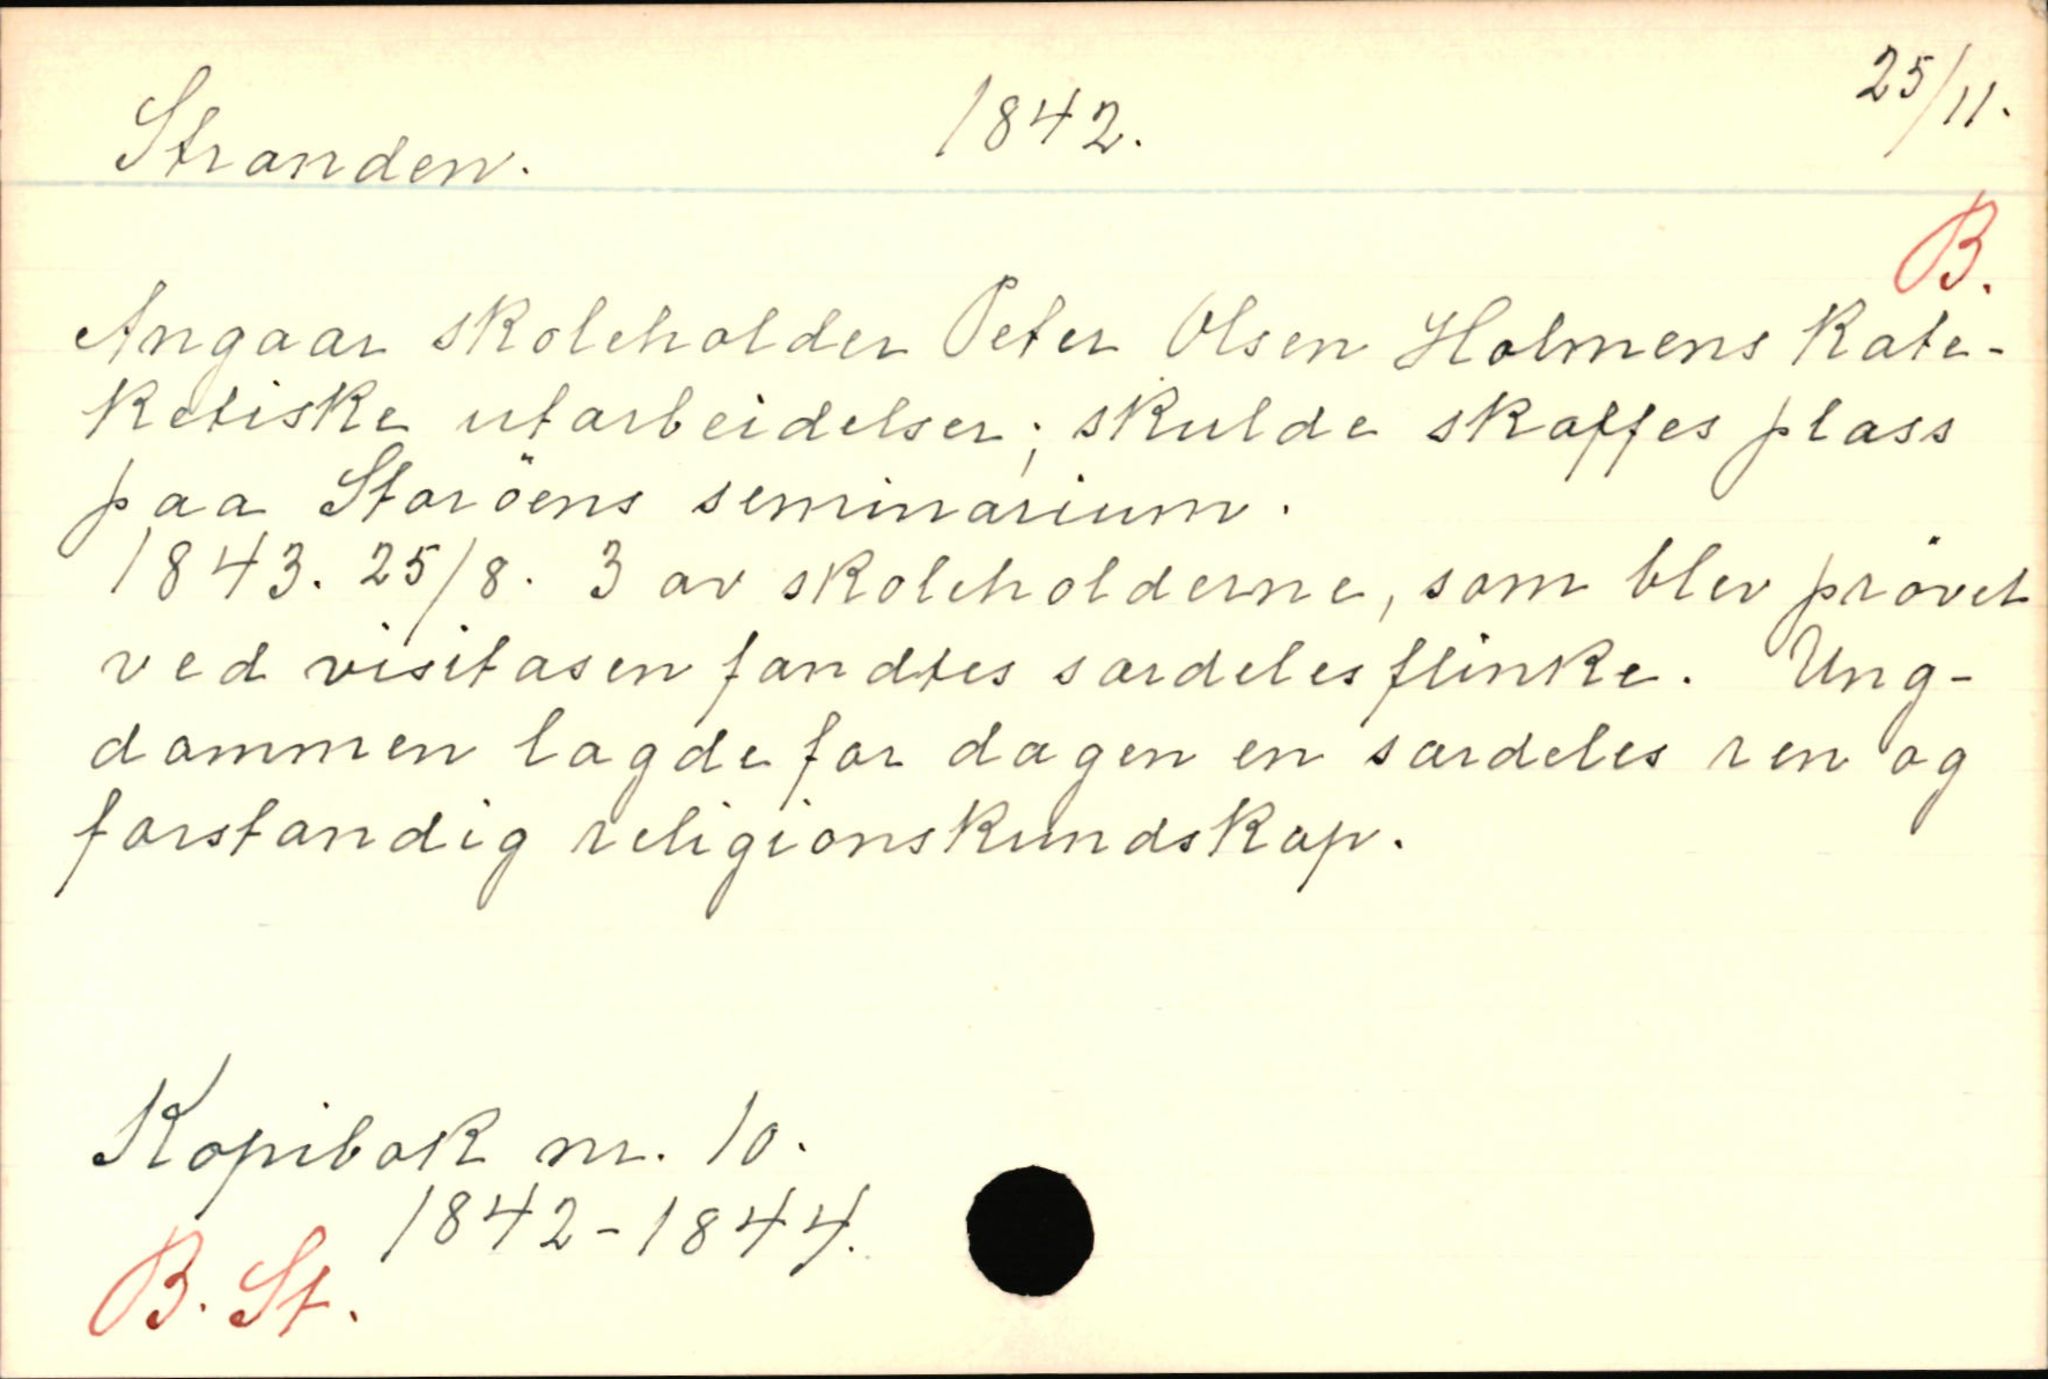 Stranden. 1842. 25/11.
B.
Angaar skoleholder Peter Olsen Holmens kate-
ketiske utarbeidelser; skulde skaffes plass
paa Storöens seminarium.
1843. 25/8. 3 av skoleholderne, som blev prövet
ved visitasen fandtes særdeles flinke. Ung-
dommen lagde for dagen en særdeles ren og
forstandig religionskundskap.
Kopibok nr. 10.
1842-1844.
B. St.